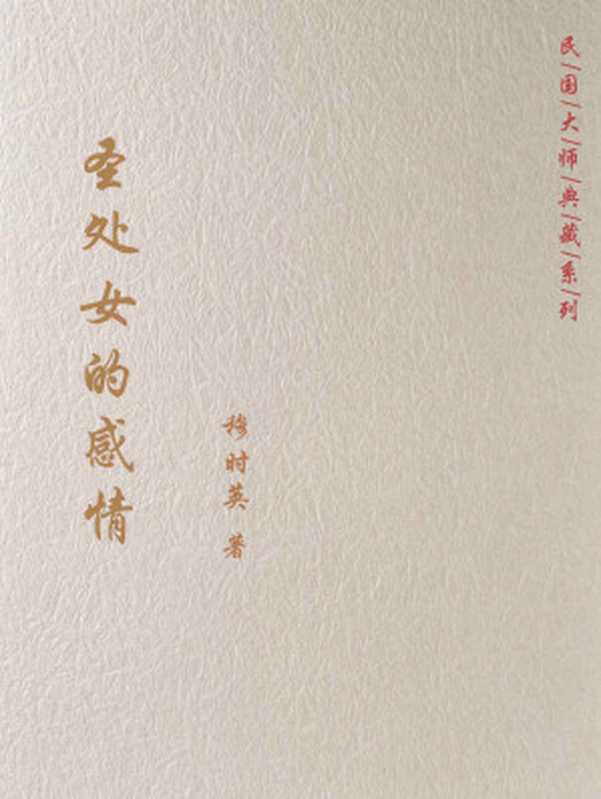 民|国|大|师|典|藏|系|列
圣处女的感情
穆时英 著